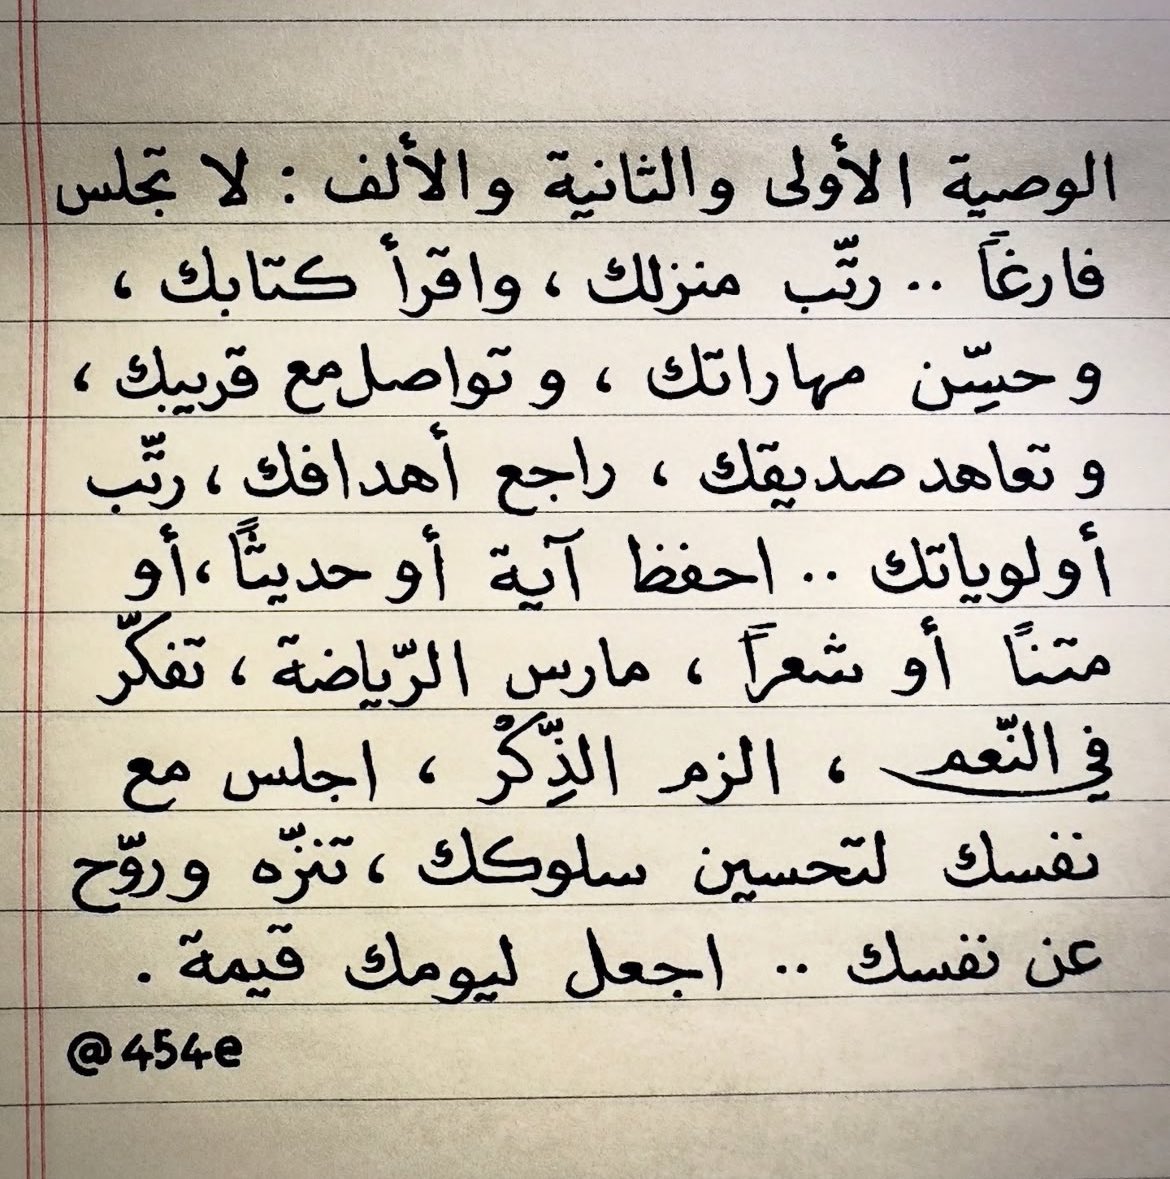 الوصية الأولى والثانية والألف : لا تجلس
فارغاً .. رتّب منزلك ، واقرأ كتابك ،
وحسِّن مهاراتك ، وتواصل مع قريبك ،
وتعاهد صديقك ، راجع أهدافك ، رتّب
أولوياتك .. احفظ آية أو حديثًا ، أو
متنًا أو شعراً ، مارس الرّياضة ، تفكّر
في النّعم ، الزم الذِّكْر ، اجلس مع
نفسك لتحسين سلوكك ، تنزّه وروّح
عن نفسك .. اجعل ليومك قيمة .
@454e